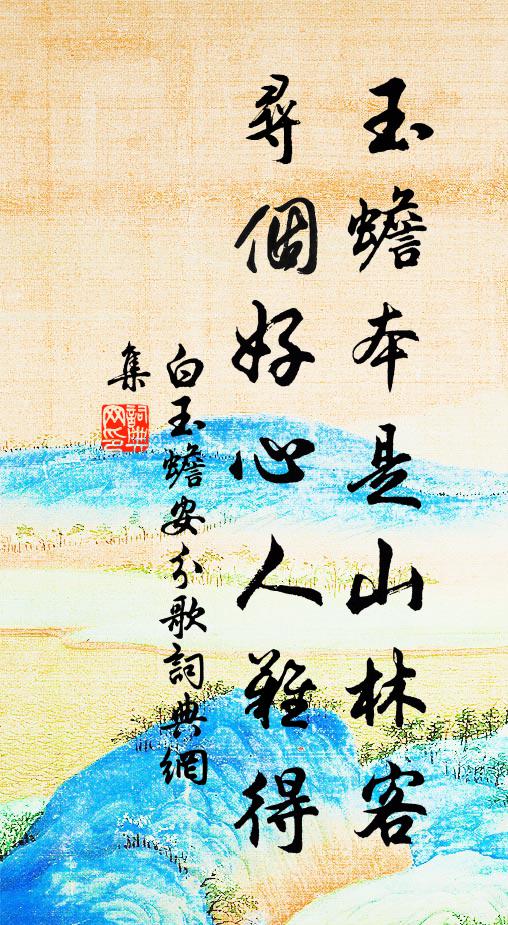 玉蟾本是山林客
尋個好心人難得
白玉蟾安分歌詞典網
集
詞典
网印